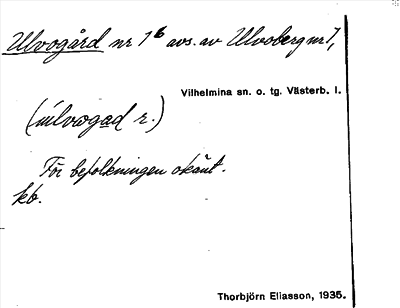 Ulvogård nr 1⁶ avs. av Ulvoberg nr 1,
Vilhelmina sn. o. tg. Västerb. l.
(ùlvogad r.)
För befolkningen okänt.
kb.
Thorbjörn Eliasson, 1935.